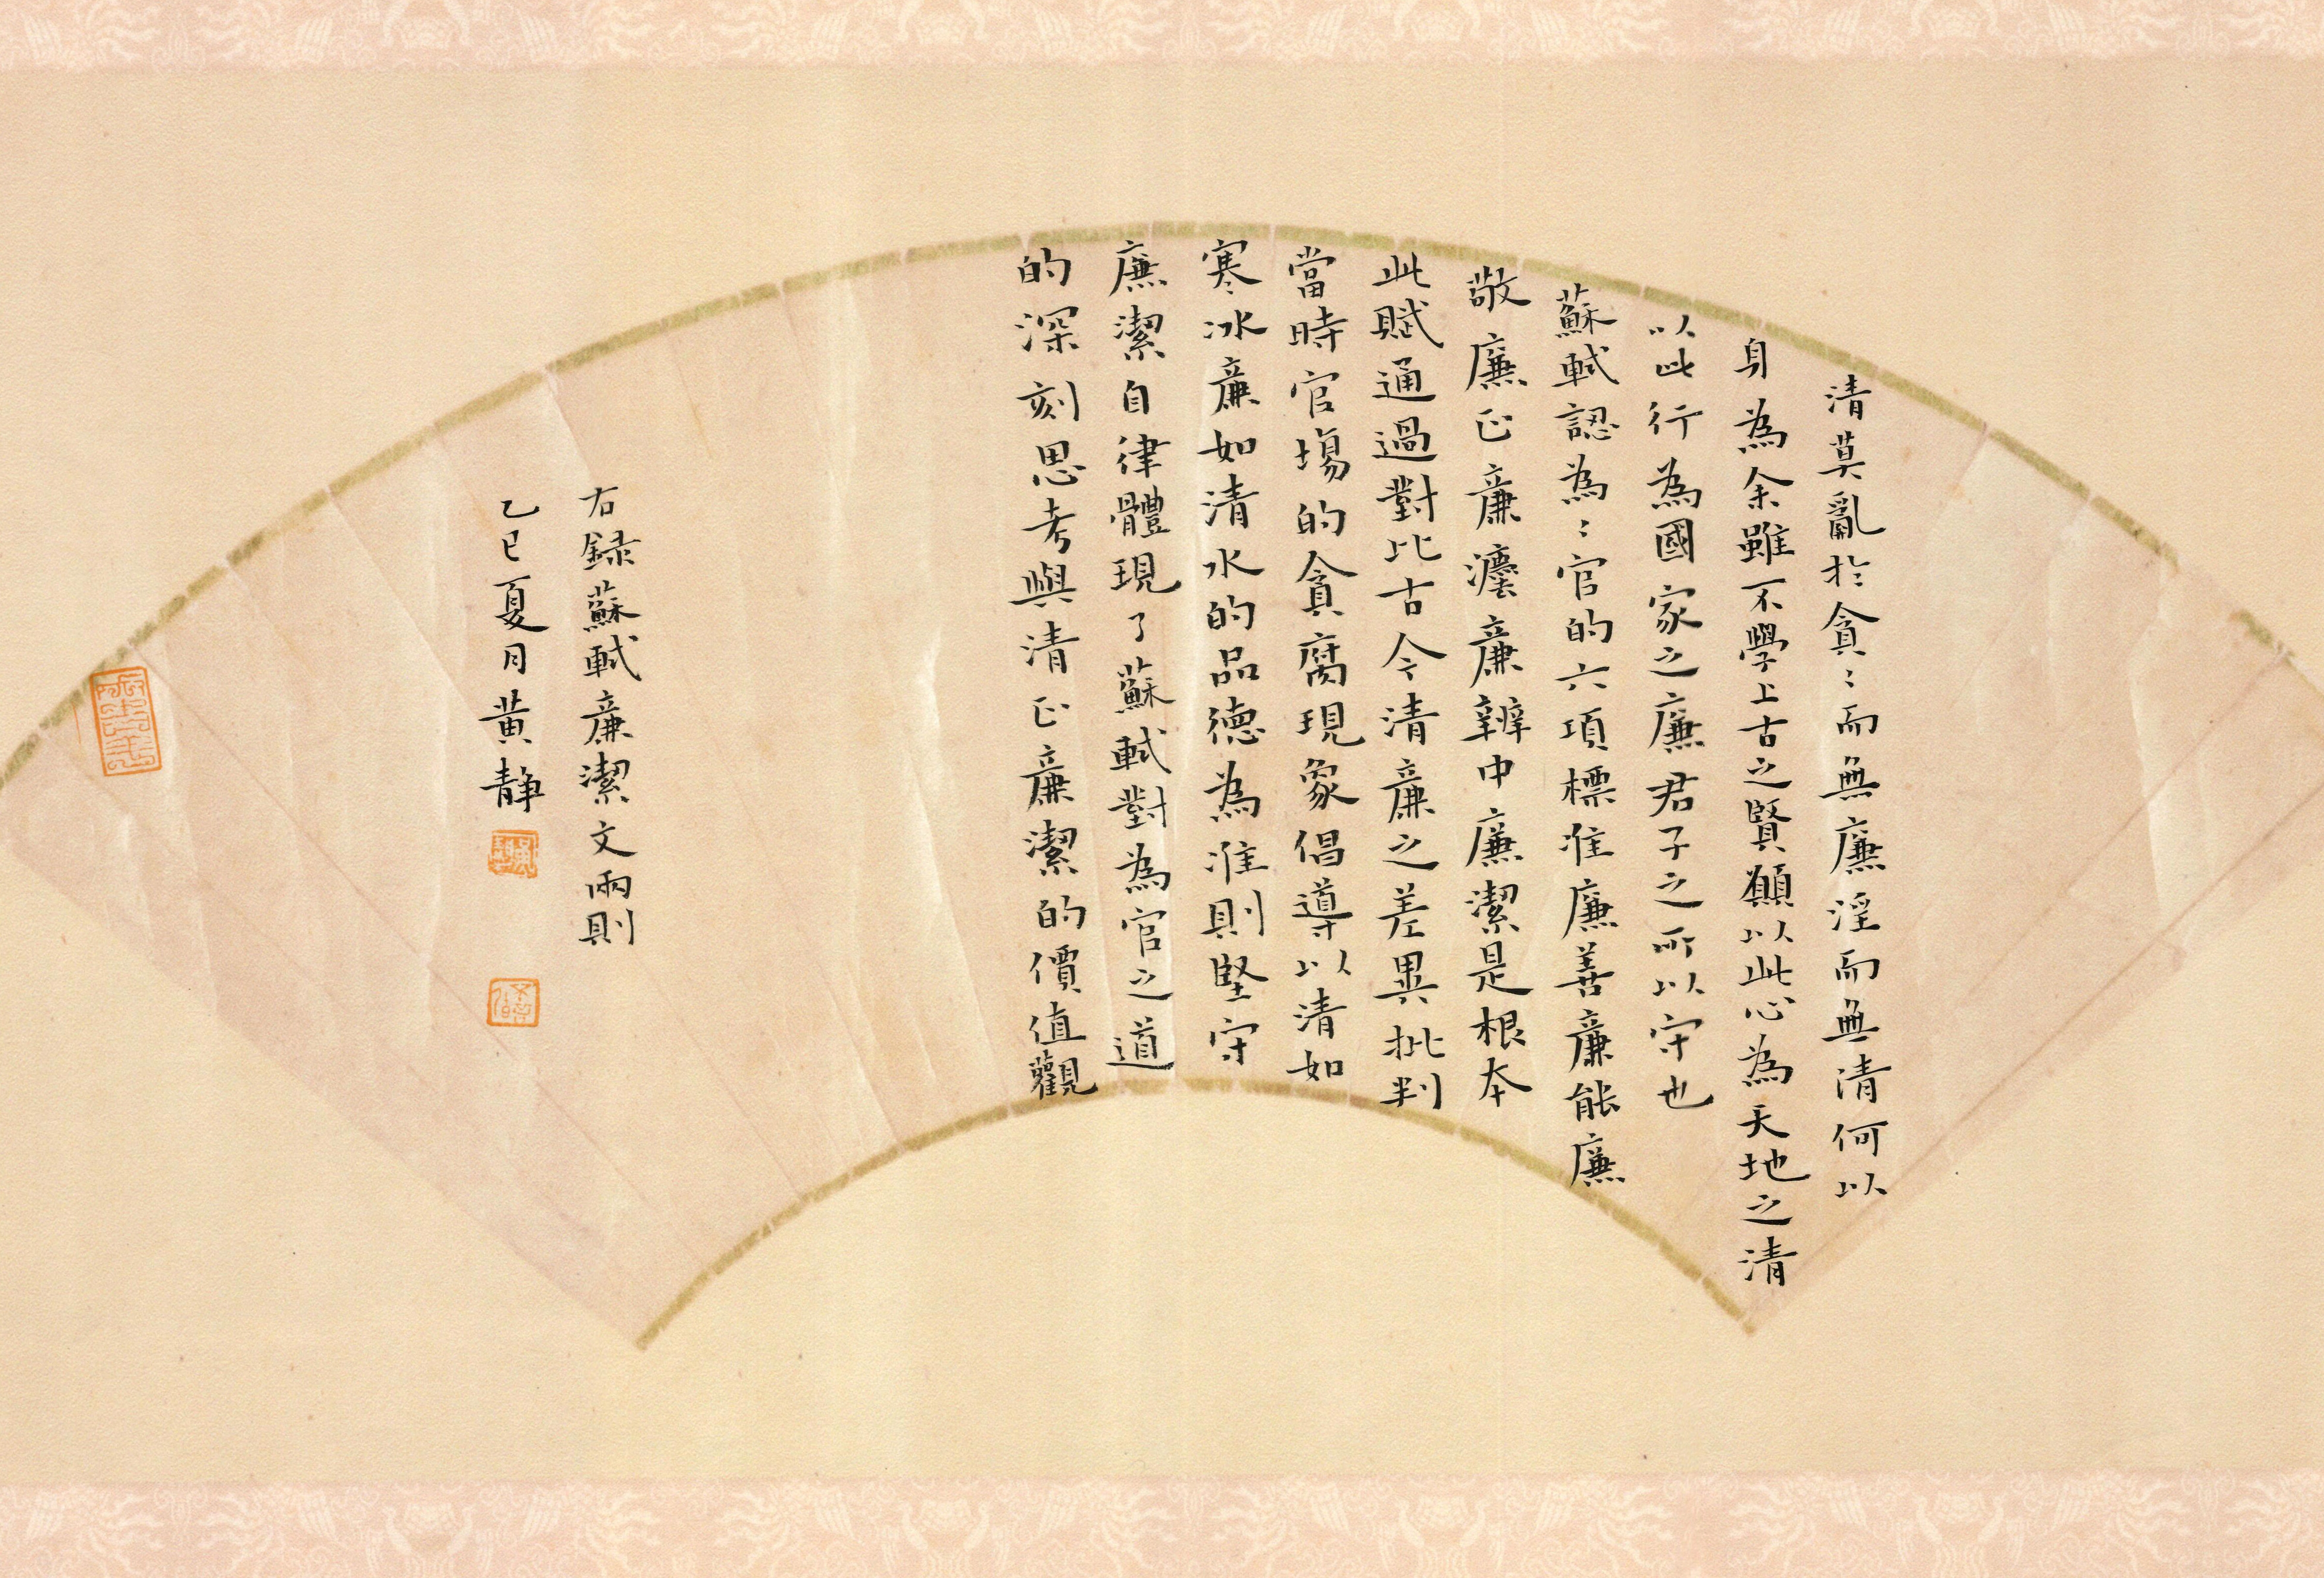 清莫亂於貪〻而無廉淫而無清何以
身為余雖不學上古之賢願以此心為天地之清
以此行為國家之廉君子之所以守也
蘇軾認為〻官的六項標准廉善廉能廉
敬廉正廉灋廉辨中廉潔是根本
此賦通過對比古今清廉之差異批判
當時官場的貪腐現象倡導以清如
寒冰廉如清水的品德為准則堅守
廉潔自律體現了蘇軾對為官之道
的深刻思考與清正廉潔的價值觀
右録蘇軾廉潔文兩則
乙巳夏月黄静